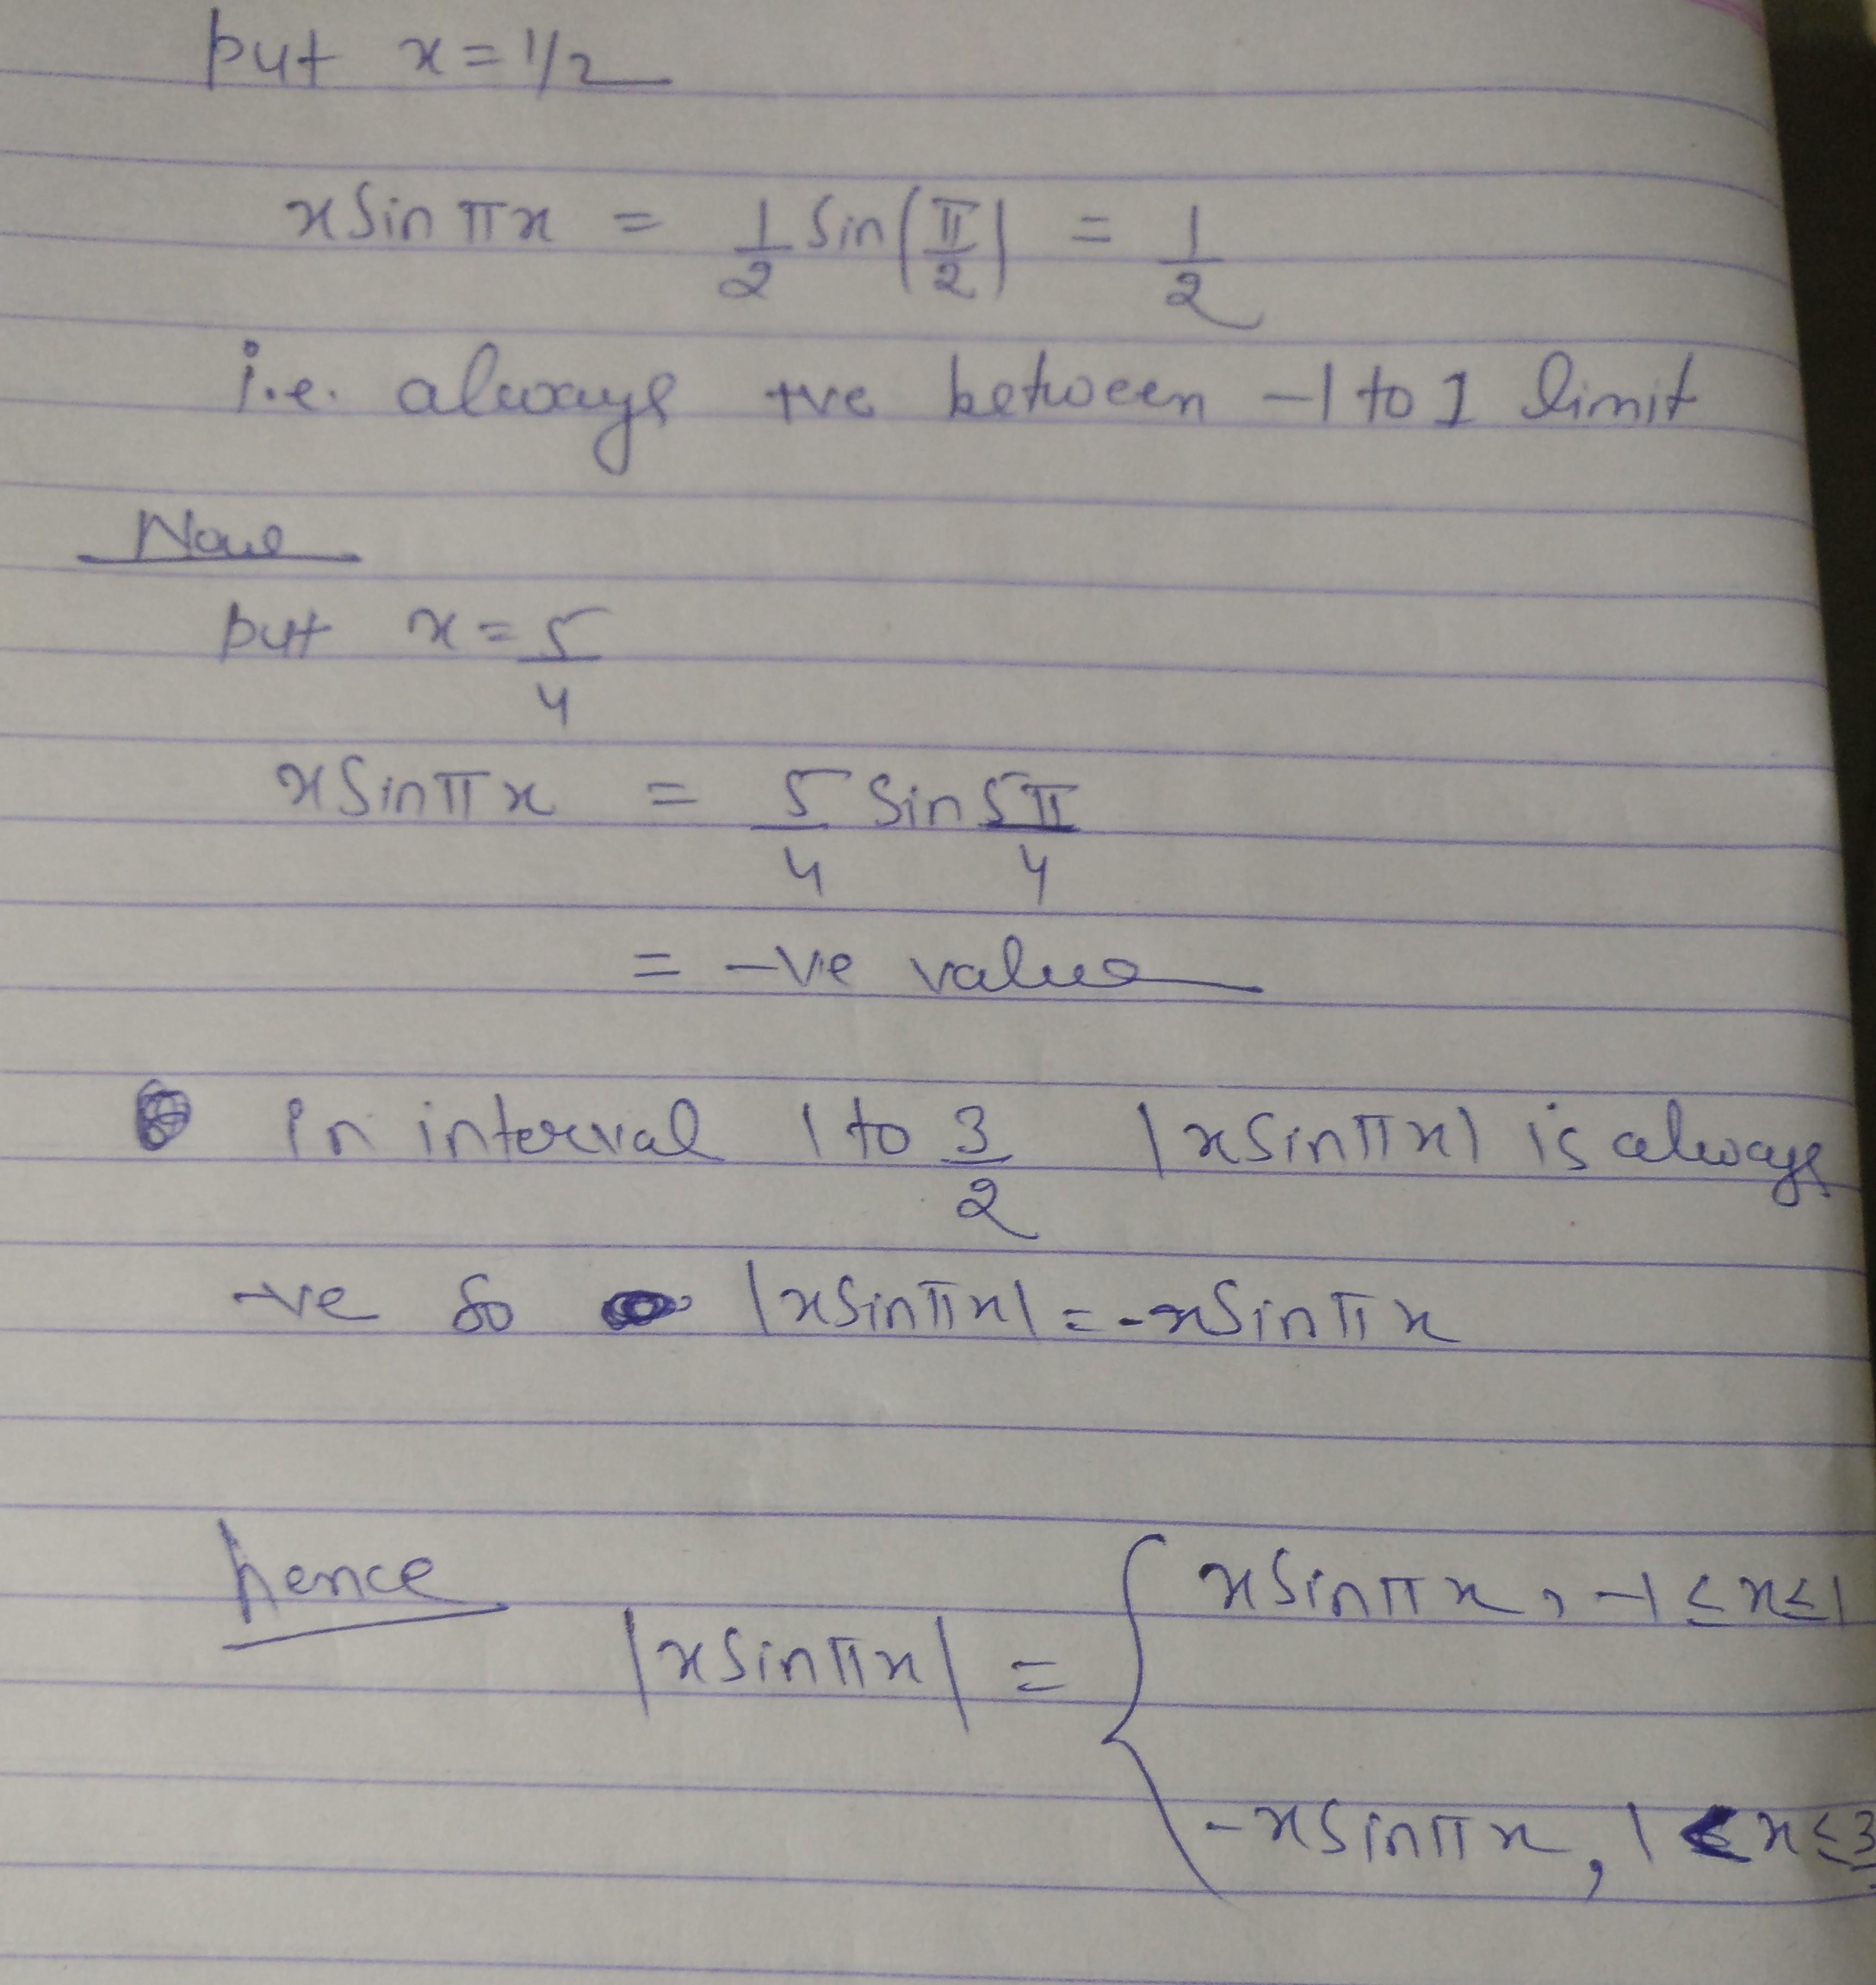 put x = 1/2
x Sin πx = 1/2 Sin(π/2) = 1/2
i.e. always +ve between -1 to 1 limit
Now
put x = 5/4
x Sin πx = 5/4 Sin 5π/4
= -ve value
in interval 1 to 3/2 |x Sin πx| is always
-ve so |x Sin πx| = -x Sin πx
hence |x Sin πx| = { x Sin πx, -1 ≤ x ≤ 1
-x Sin πx, 1 < x ≤ 3